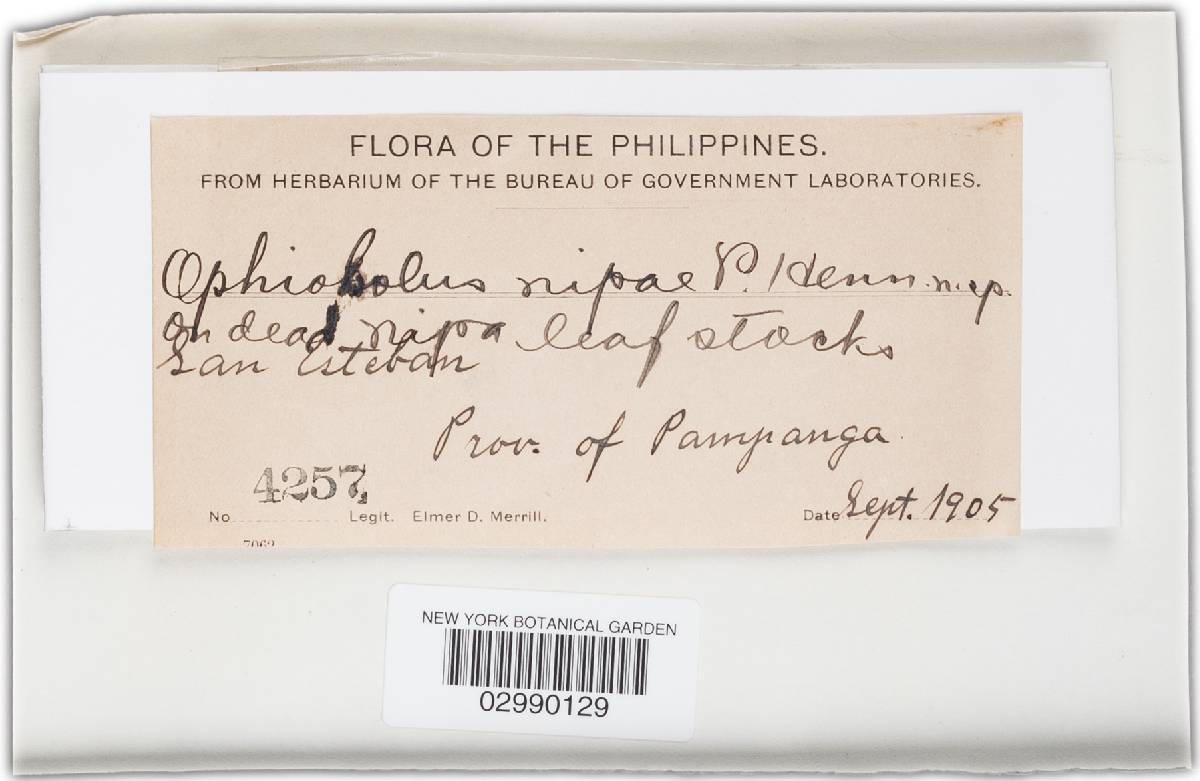 FLORA OF THE PHILIPPINES.
FROM HERBARIUM OF THE BUREAU OF GOVERNMENT LABORATORIES.
Ophiobolus nipae P. Henn. n. sp.
On dead nipa leaf stocks
San Esteban
Prov. of Pampanga
4257
No. Legit. Elmer D. Merrill. Date Sept. 1905
NEW YORK BOTANICAL GARDEN
02990129